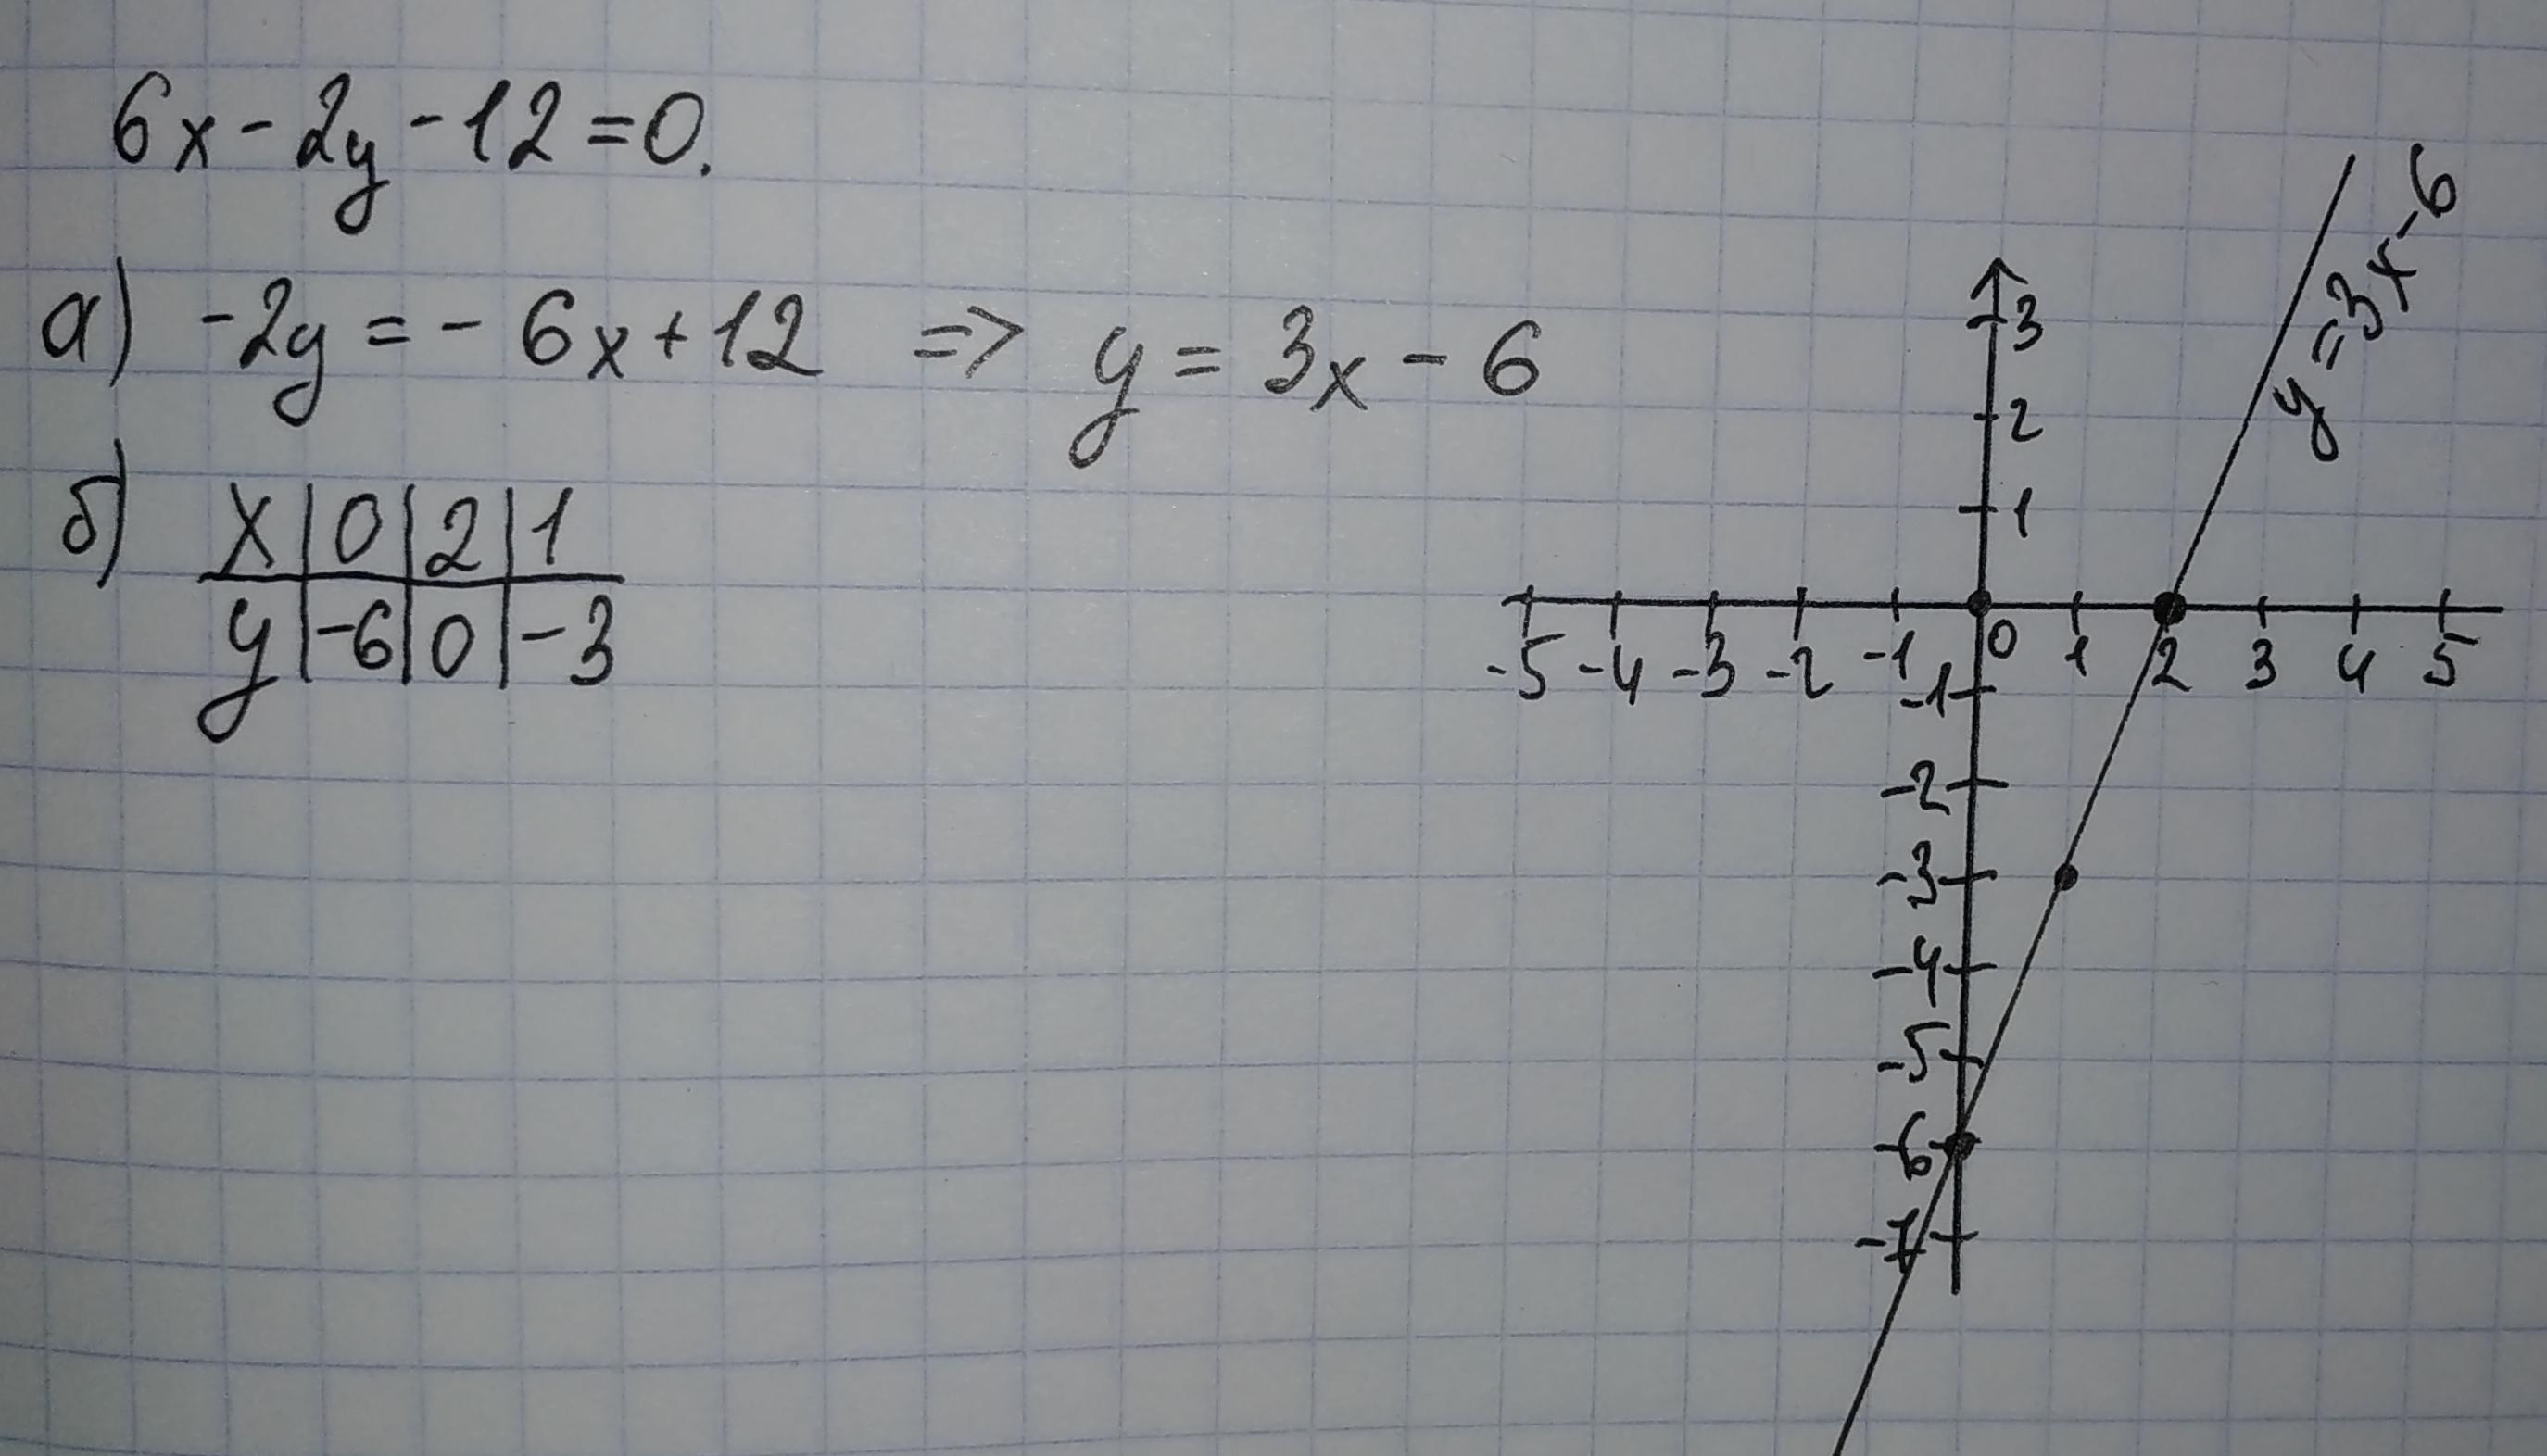 6x-2y-12=0.
а) -2y=-6x+12 => y=3x-6
б)
x|0|2|1
y|-6|0|-3
y=3x-6
3
2
1
-5 -4 -3 -2 -1 0 1 2 3 4 5
-1
-2
-3
-4
-5
-6
-7